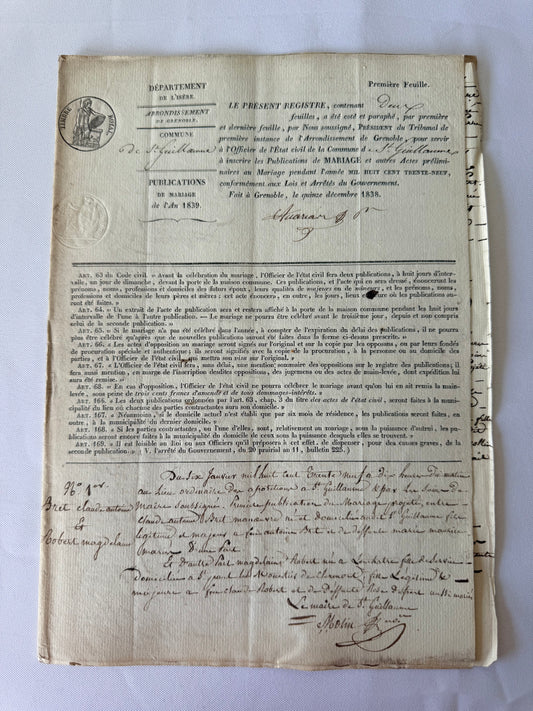 Première Feuille.
DÉPARTEMENT
DE L'ISÈRE.
ARRONDISSEMENT
DE GRENOBLE.
COMMUNE
de St Guillaume
PUBLICATIONS
DE MARIAGE
de l'An 1839.
TIMBRE ROYAL
LE PRÉSENT REGISTRE, contenant Deux
feuilles, a été coté et paraphé, par première
et dernière feuille, par Nous soussigné, PRÉSIDENT du Tribunal de
première instance de l'Arrondissement de Grenoble, pour servir
à l'Officier de l'État civil de la Commune d e St Guillaume
à inscrire les Publications de MARIAGE et autres Actes prélimi-
naires au Mariage pendant l'année MIL HUIT CENT TRENTE-NEUF,
conformément aux Lois et Arrêtés du Gouvernement.
Fait à Grenoble, le quinze décembre 1838.
ART. 63 du Code civil. « Avant la célébration du mariage, l'Officier de l'état civil fera deux publications, à huit jours d'inter-
valle, un jour de dimanche, devant la porte de la maison commune. Ces publications, et l'acte qui en sera dressé, énonceront les
prénoms, noms, professions et domiciles des futurs époux, leurs qualités de majeurs ou de mineurs, et les prénoms, noms,
professions et domiciles de leurs pères et mères : cet acte énoncera, en outre, les jours, lieux et heure où les publications au-
ront été faites. »
ART. 64. « Un extrait de l'acte de publication sera et restera affiché à la porte de la maison commune pendant les huit jours
d'intervalle de l'une à l'autre publication. — Le mariage ne pourra être célébré avant le troisième jour, depuis et non compris
celui de la seconde publication. »
ART. 65. « Si le mariage n'a pas été célébré dans l'année, à compter de l'expiration du délai des publications, il ne pourra
plus être célébré qu'après que de nouvelles publications auront été faites dans la forme ci-dessus prescrite. »
ART. 66. « Les actes d'opposition au mariage seront signés sur l'original et sur la copie par les opposans, ou par leur fondés
de procuration spéciale et authentique ; ils seront signifiés avec la copie de la procuration, à la personne ou au domicile des
parties, et à l'Officier de l'état civil, qui mettra son visa sur l'original. »
ART. 67. « L'Officier de l'état civil fera, sans délai, une mention sommaire des oppositions sur le registre des publications ; il
fera aussi mention, en marge de l'inscription desdites oppositions, des jugemens ou des actes de main-levée, dont expédition lui
aura été remise. »
ART. 68. « En cas d'opposition, l'Officier de l'état civil ne pourra célébrer le mariage avant qu'on lui en ait remis la main-
levée, sous peine de trois cents francs d'amende et de tous dommages-intérêts. »
ART. 166. « Les deux publications ordonnées par l'art. 63, chap. 3 du titre des actes de l'état civil, seront faites à la municipa-
lité du lieu où chacune des parties contractantes aura son domicile. »
ART. 167. « Néanmoins, si le domicile actuel n'est établi que par six mois de résidence, les publications seront faites, en
outre, à la municipalité du dernier domicile. »
ART. 168. « Si les parties contractantes, ou l'une d'elles, sont, relativement au mariage, sous la puissance d'autrui, les pu-
blications seront encore faites à la municipalité du domicile de ceux sous la puissance desquels elles se trouvent. »
ART. 169. « Il est loisible au Roi ou aux Officiers qu'il préposera à cet effet, de dispenser, pour des causes graves, de la
seconde publication. » ( V. l'arrêté du Gouvernement, du 20 prairial an 11, bulletin 225. )
No 1er
Bret claude antoine
&
Robert magdelaine
Du six Janvier mil huit cent trente neuf a dix heures du matin
au lieu ordinaire des apositions à St Guillaume & par les soins du
Maire soussigné, Première publication du Mariage projeté, entre
claude antoine Bret manoeuvre né et domicilié à St Guillaume fils
légitime et majeur à feu antoine Bret et de deffunte marie
mariés d'une Part
Et d'autre Part magdelaine Robert
Domiciliée à St fille Légitime &
majeure a feu claude Robert et de Deffunte Rose
Le maire de St Guillaume